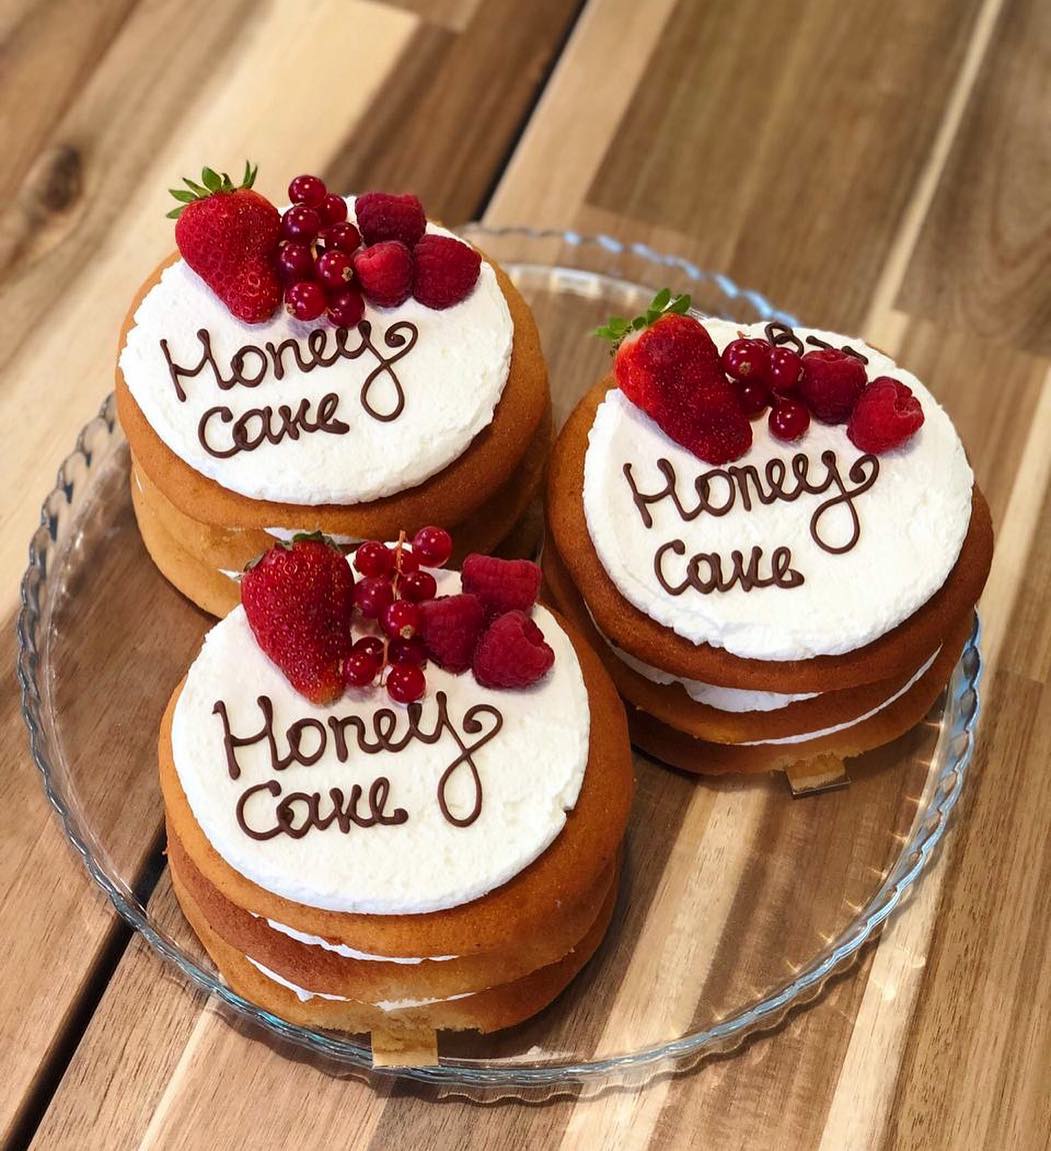 Honey
Cake
Honey
Cake
Honey
Cake